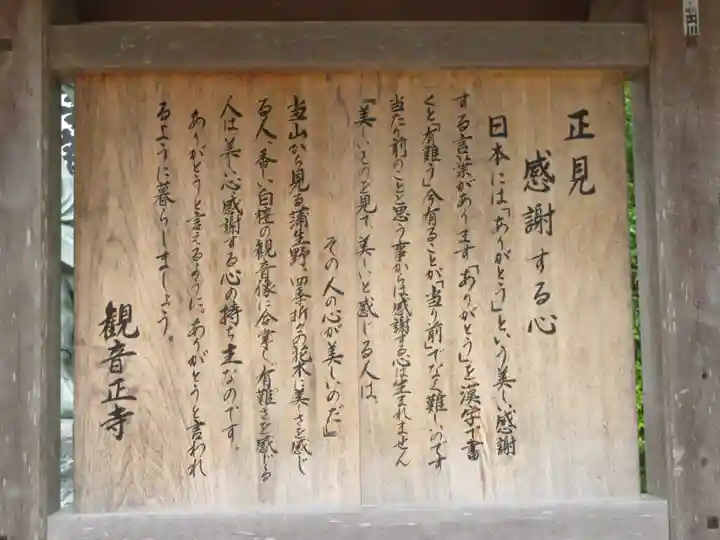 正見
感謝する心
日本には「ありがとう」という美しい感謝
する言葉があります「ありがとう」を漢字で書
くと「有難う」今有ることが「当り前」でなく難しいのです
当たり前のことと思う事からは感謝する心は生まれません
「美しいものを見て、美しいと感じる人は、
その人の心が美しいのだ」
当山から見る蒲生野、四季折々の花木に美しさを感じ
る人、香しい白檀の観音像に合掌し、有難さを感じる
人は美しい心、感謝する心の持ち主なのです。
ありがとうと言えるように。ありがとうと言われ
るように暮らしましょう。
観音正寺